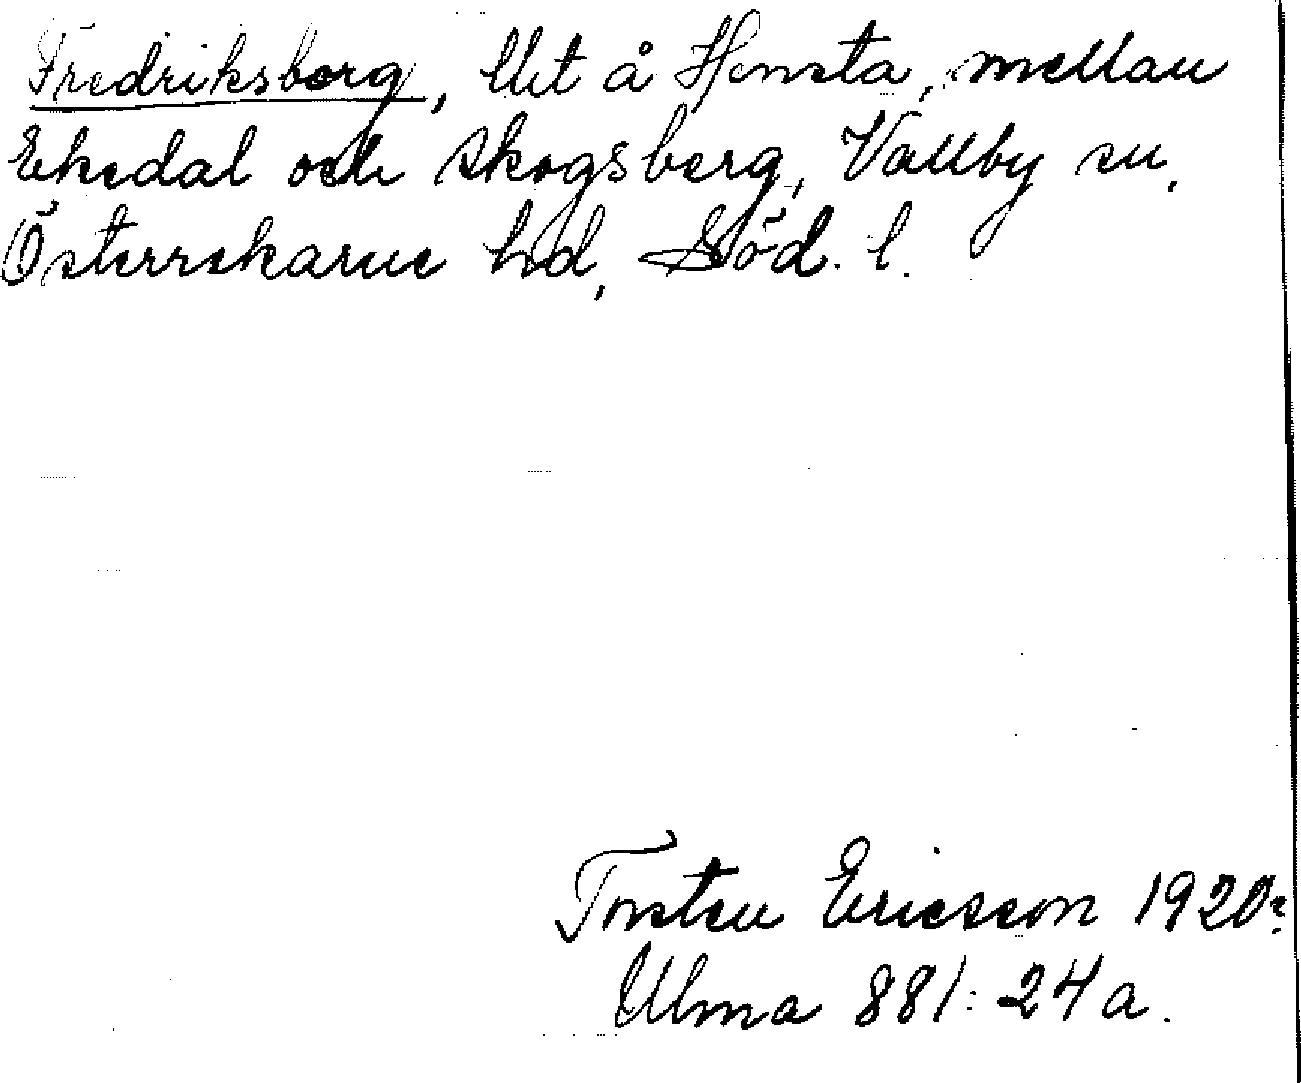 Fredriksborg, lht å Hensta, mellan
Ekedal och Skogsberg, Vallby sn,
Österrekarne hd, Söd. l.
Torsten Ericsson 1920?
Ulma 881:24a.